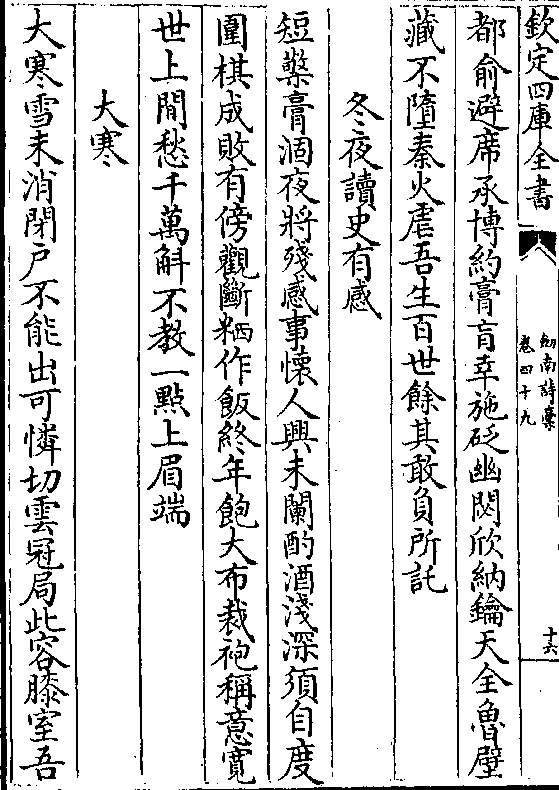 欽定四庫全書
劒南詩稾
卷四十九
十六
都俞避席承博約膏肓幸施砭幽閟欣納鑰天全魯壁
藏不墮秦火虐吾生百世餘其敢負所託
冬夜讀史有感
短檠膏涸夜將殘感事懷人興未闌酌酒淺深須自度
圍棋成敗有傍觀斷粞作飯終年飽大布裁袍稱意寛
世上閒愁千萬斛不教一點上眉端
大寒
大寒雪未消閉戸不能出可憐切雲冠局此容膝室吾